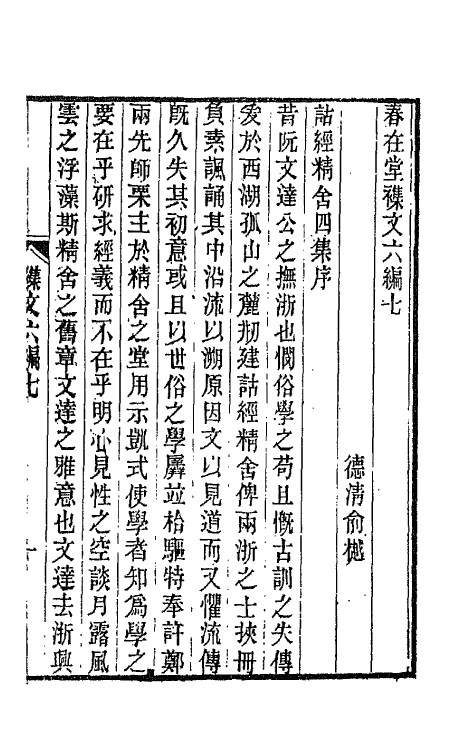 春在堂襍文六編七
德清俞樾
詁經精舍四集序
昔阮文達公之撫浙也憫俗學之苟且慨古訓之失傳
爰於西湖孤山之麓剏建詁經精舍俾兩浙之士挾冊
負素諷誦其中沿流以溯原因文以見道而又懼流傳
旣久失其初意或且以世俗之學羼竝枱驅特奉許鄭
兩先師栗主於精舍之堂用示凱式使學者知爲學之
要在乎研求經義而不在乎明心見性之空談月露風
雲之浮藻斯精舍之舊章文達之雅意也文達去浙興
襍文六編七
一